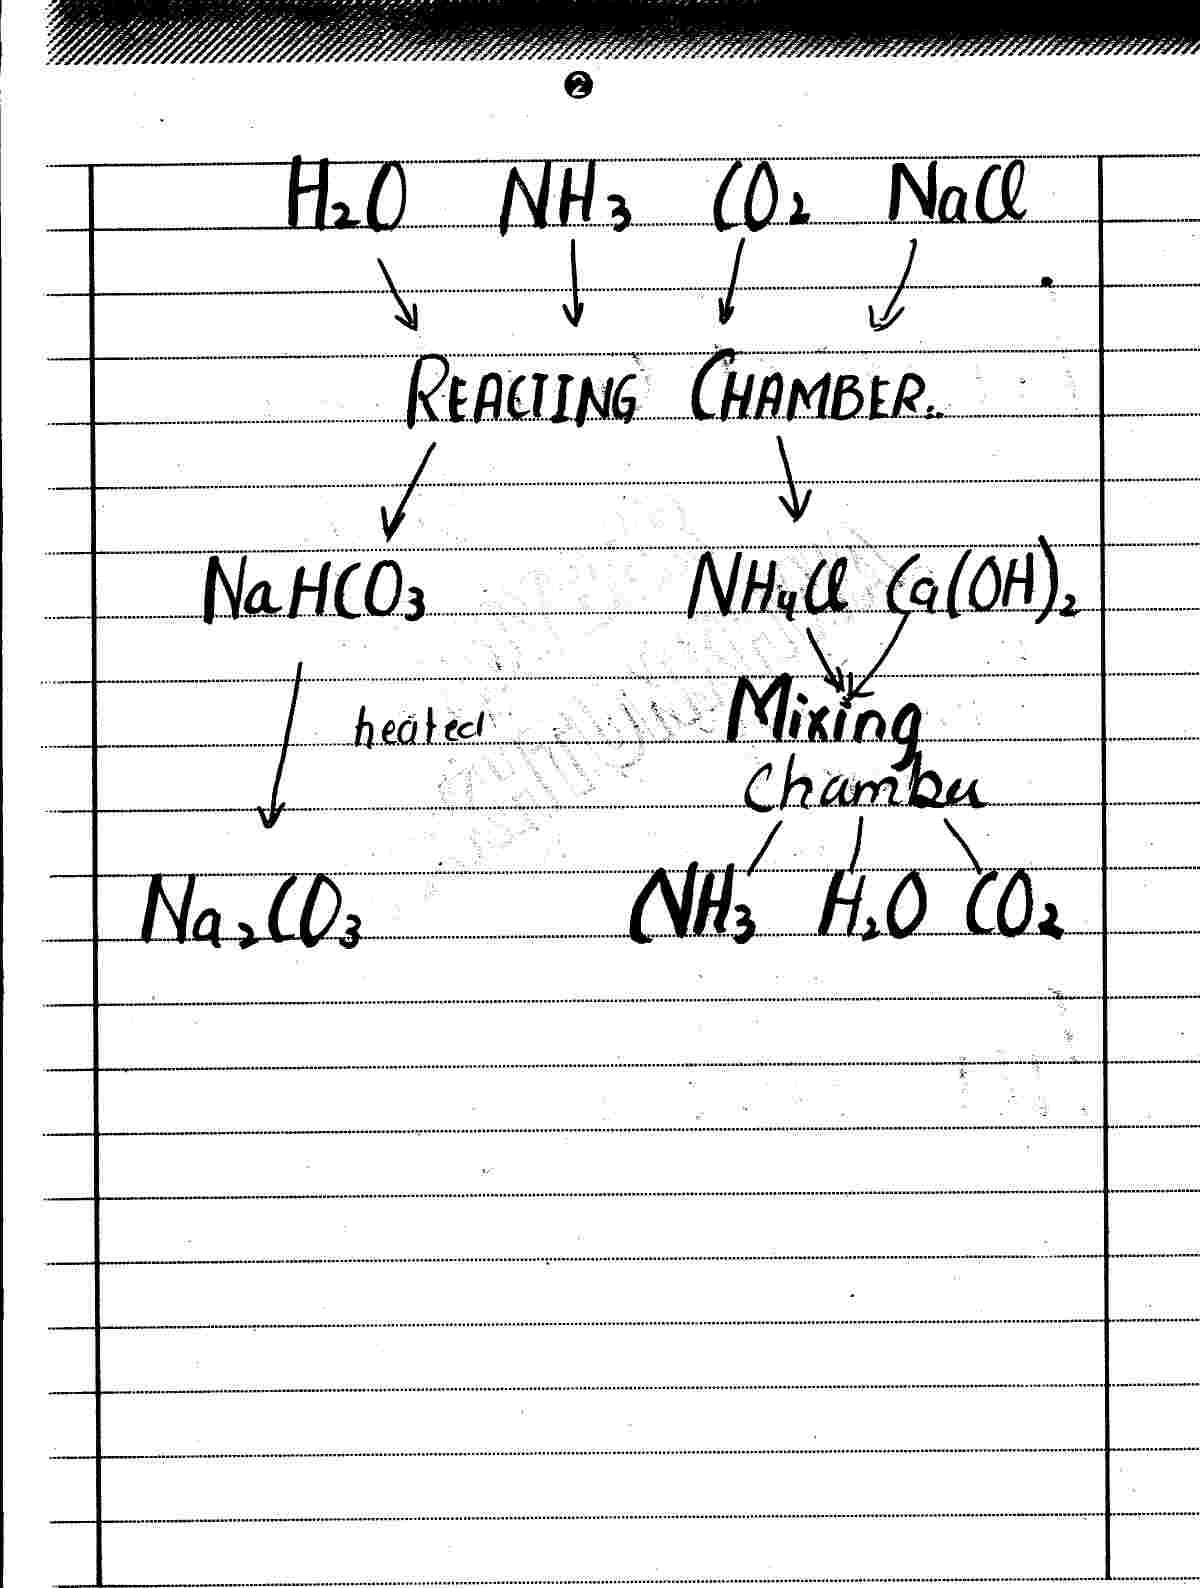 2
H₂O NH₃ CO₂ NaCl
REACTING CHAMBER..
NaHCO₃ NH₄Cl Ca(OH)₂
heated Mixing
Chamber
Na₂CO₃ NH₃ H₂O CO₂